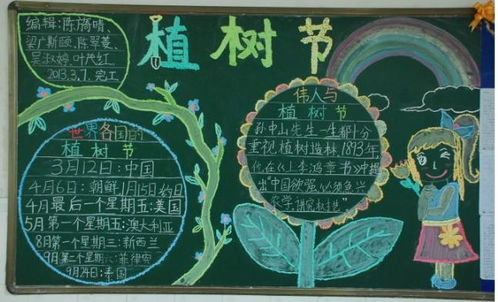 编辑:陈旖晴、
梁广斯颐、陈翠菱、
吴淑婷、叶芷红
2013.3.7.完工
植树节
世界各国的
植树节
3月12日:中国
4月6日:朝鲜 1月15日:约旦
4月最后一个星期五:美国
5月第一个星期五:澳大利亚
8月第一个星期三:新西兰
9月第二个星期六:菲律宾
9月24日:泰国
伟人与
植树节
孙中山先生一生都十分
重视植树造林1893年
他在《上李鸿章书》中提
出“中国欲强必须急兴
农学,讲究树艺”